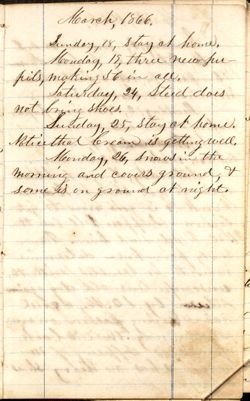 March, 1866.
Sunday, 18, stay at home.
Monday, 19, three new pu
pils, making 56 in all.
Saturday, 24, Sted does
not bring shoes.
Sunday, 25, stay at home.
Notice that Cream is getting well.
Monday, 26, snows in the
morning and covers ground, &
some is on ground at night.